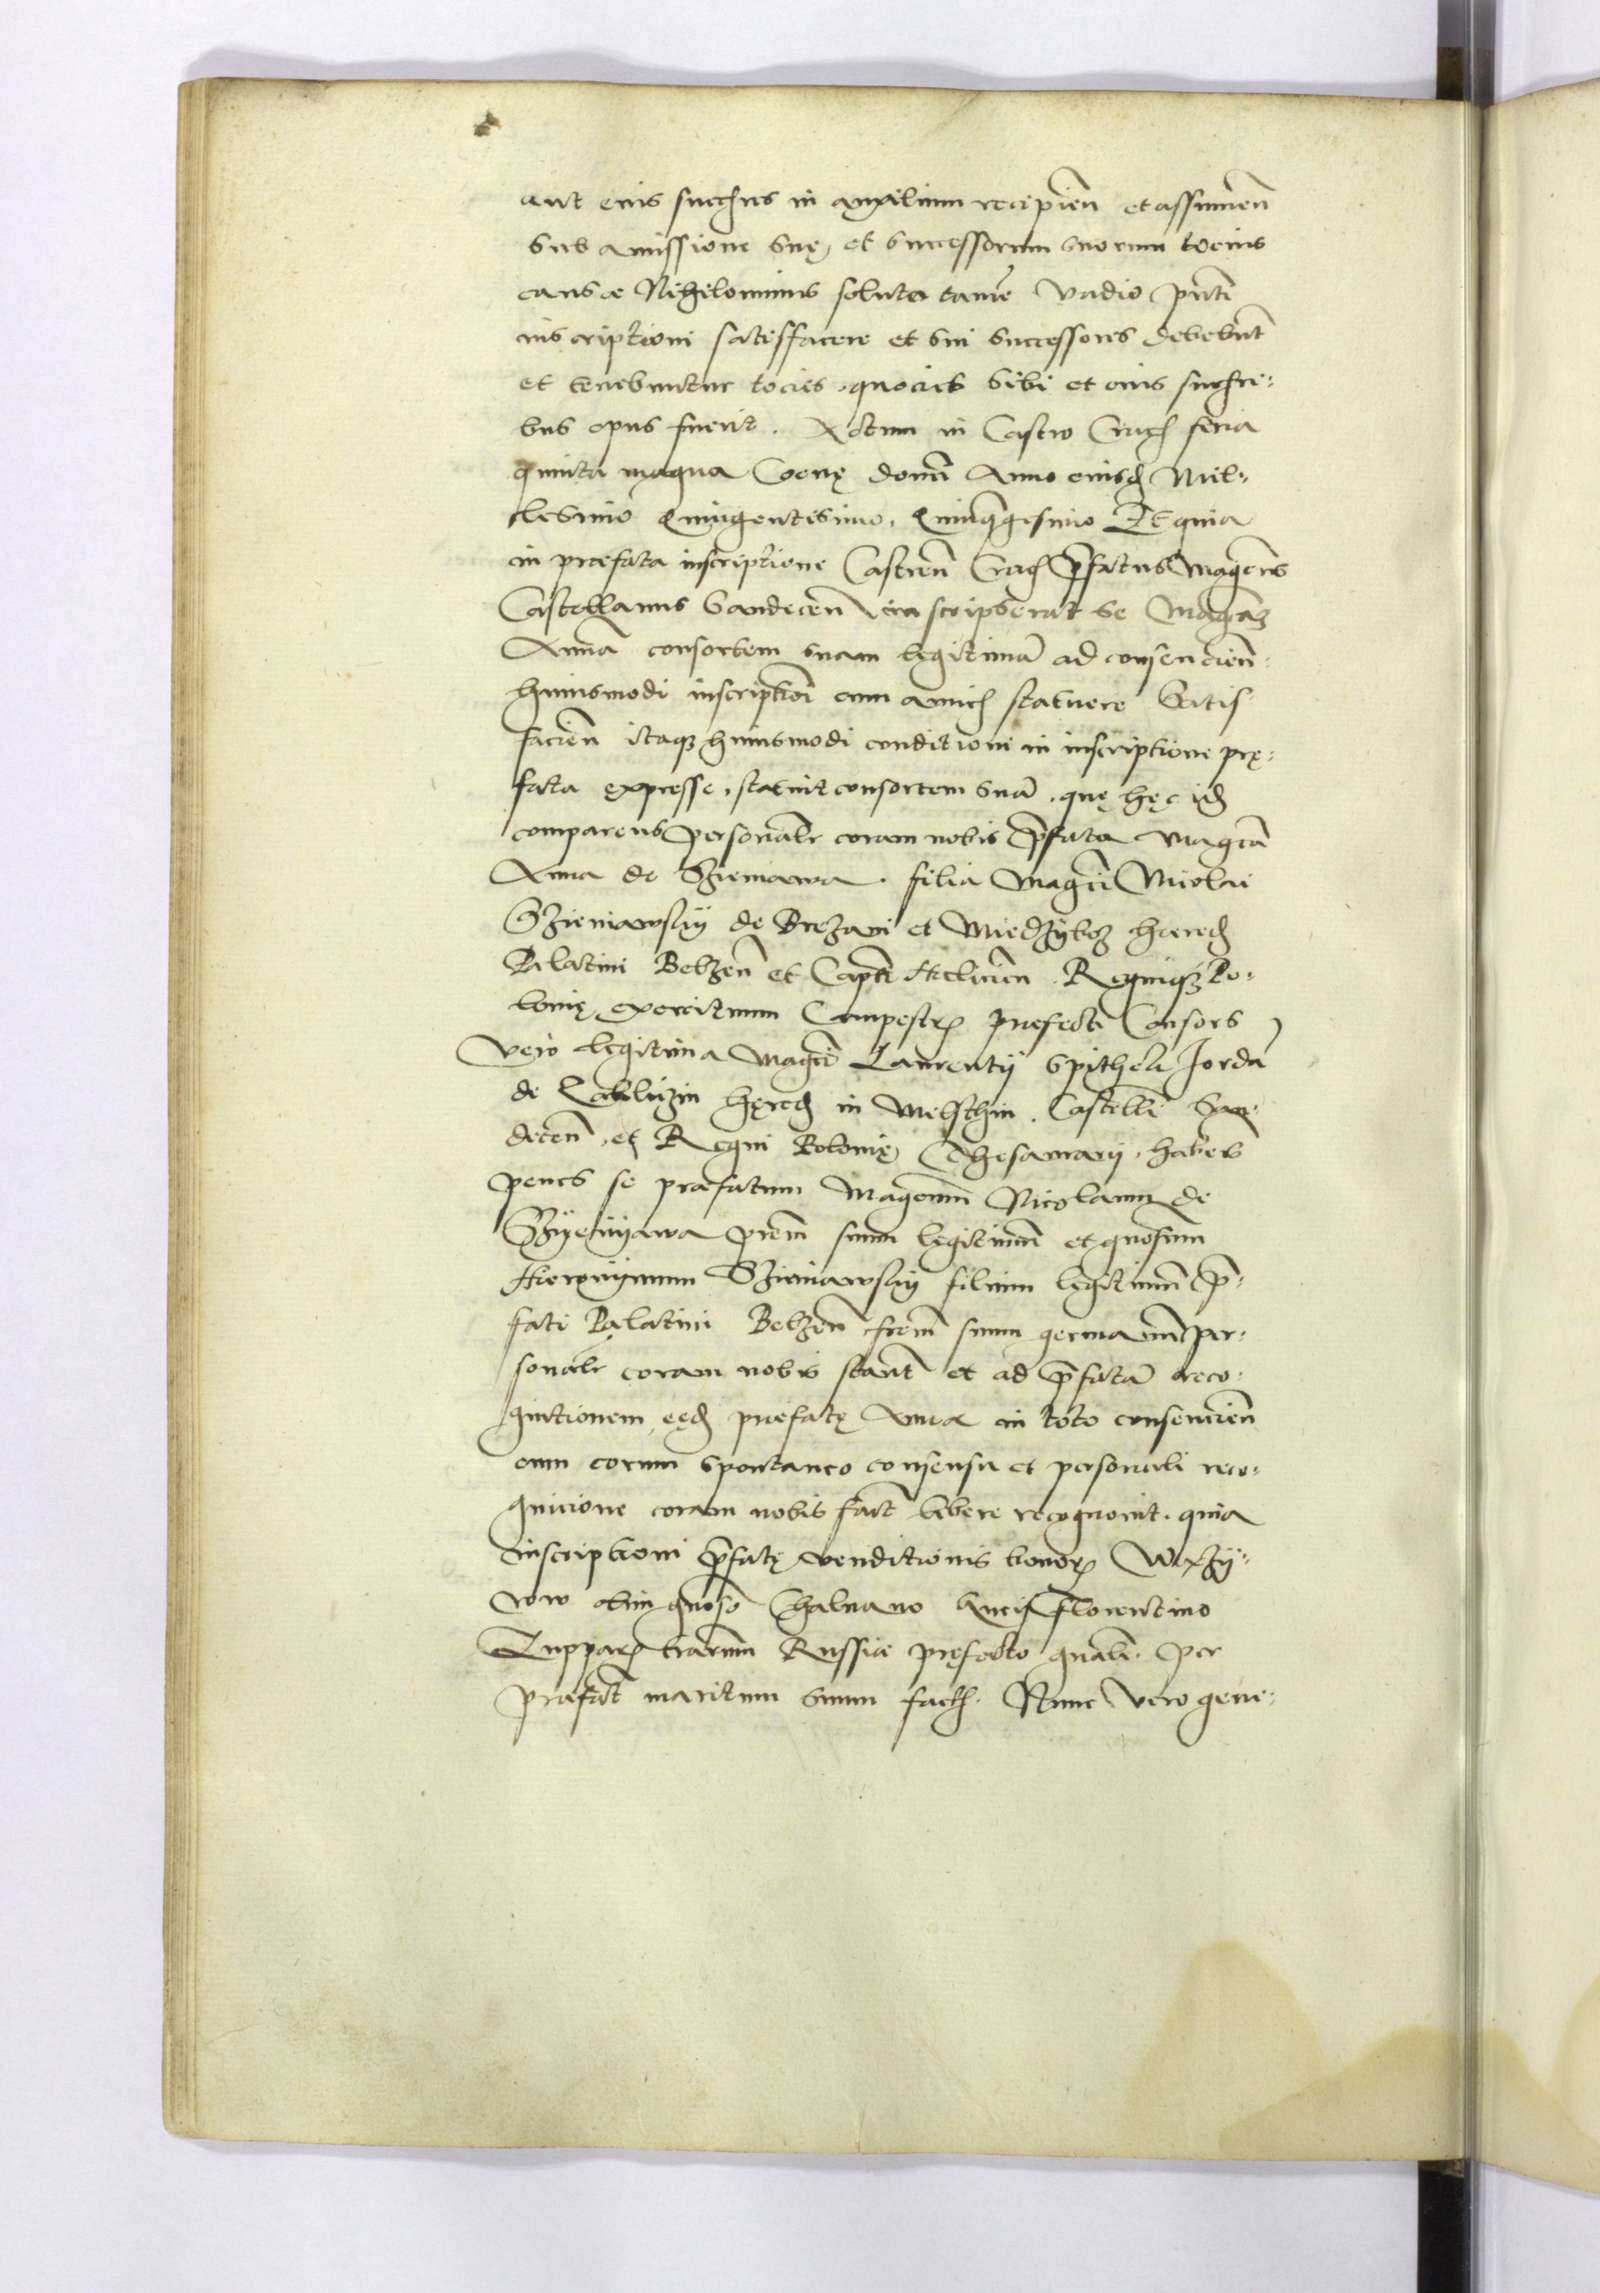 aut eius succ̄ibus in auxilium recipien̄ et assumen̄
sub amissione suę et successorum suorum tocius
causæ Nihilominus soluto tamē vadio pn̄ti
inscriptioni satisfacere et sui successores debebūt
et tenebuntur tocies, quocies sibi et eius succ̄ri-
bus opus fuerit. Actum in Castro Crac̄ feria
quinta magna Coenę domi̅ Anno eiusd̄ Mil-
lesimo Quingentesimo, Quinq̄gesimo Et quia
in præfata inscriptione Castren̄ Crac̄ p̄fatus Mag̅cus
Castellanus Sandecen̄ inscripserat se Mag̅caz
Annā consortem suam legitimā ad consencien̄
huiusmodi inscriptioi̅ cum amic̄ statuere Satis
facien̄ itaqz huiusmodi conditioni in inscriptione prę-
fata expresse, statuit consortem suā, quę hęc id̄
comparens personal̄r coram nobis p̄fata Mag̅ca
Anna de Szieniawa. filia Mag̅ci Nicolai
Szieniawskij de Brezani et Miedzÿboz hæred̄
Palatini Belzen̄ et Capn̄ei Halicien̄ Regniqz Po-
lonię exercituum Campestr̄ præfecti Consors
vero legitima Mag̅ci Laurentij Spithek Jordā
de Zakliczin hęred̄ in Melschin. Castellī San-
decen̄, et Regni Polonię Thesaurarij, habens
penes se præfatum Mag̅cum Nicolaum de
Szÿenÿawa prem̄ suum legitimū et gnosum̄
Hieronÿmum Szieniawskij filium legitimū p̄-
fati Palatini Belzen̄ frem̄ suum germanū per-
sonal̄r coram nobis stant̄ et ad p̄fatā reco-
gnitionem eęd̄ præfatę Annæ in toto consencien̄
cum eorum spontaneo consensu et personali reco-
gnicione coram nobis fact̄ libere recognouit, quia
inscriptioni p̄fatę venditionis bonor̄
olim gnoso Florentino
Zuppar̄ terrarum Russiæ pręfecto per
præfat̄ maritum suum fact̄. Nunc vero gene-